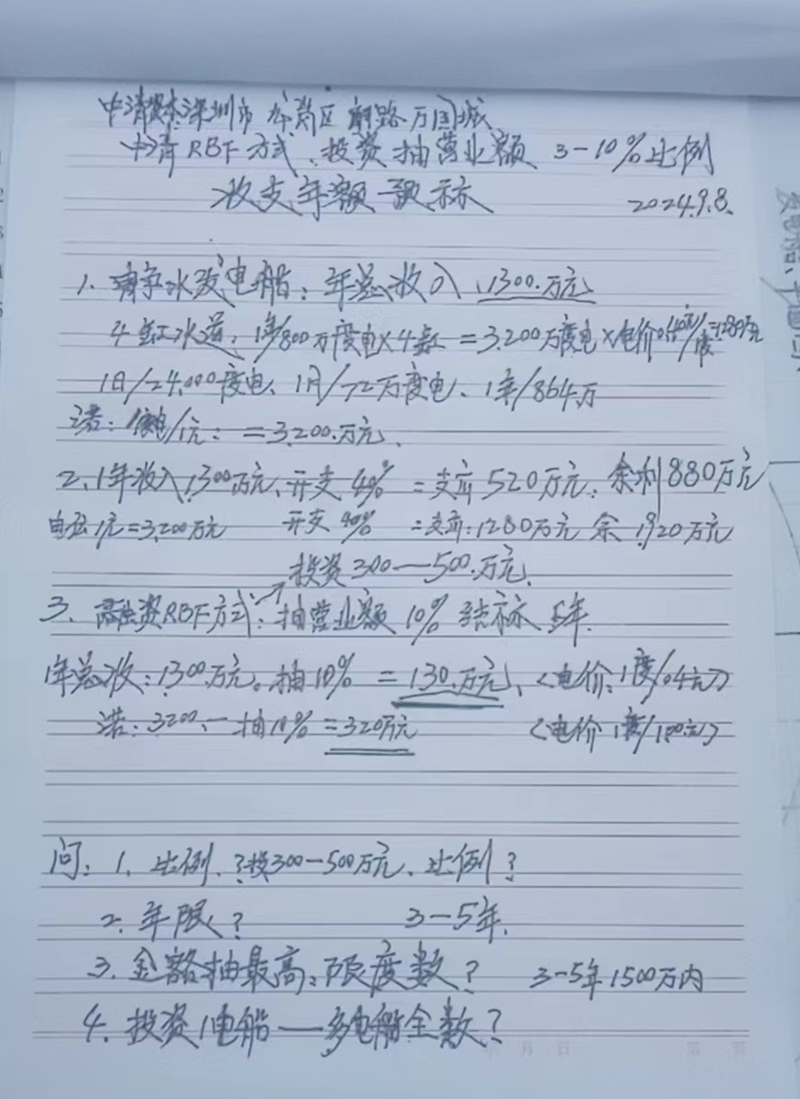 深圳市 区 路万国城
RBF方式、投资抽营业额 3-10%比例
收支年额预标 2024.9.8.
1. 水发电船: 年总收入 1300.万元
4缸水道: 1年/800万度电×4缸 = 3.200万度电×电价0.40元/度=1280万元
1日/24.000度电、1月/72万度电、1年/864万
诺: 1度电/1元: = 3.200.万元.
2.、1年收入1.300万元、开支40% =支齐520万元: 余利880万元
电压1元=3.200万元 开支40% =支齐:1280万元 余1.920万元
投资300—500.万元.
3. 融资RBF方式: 抽营业额10% 结标 5年.
1年总收: 1.300.万元。抽10% = 130.万元、〈电价: 1度/0.4元〉
诺: 3200.一抽10% =320万元 〈电价 1度/1.00元〉
问: 1. 比例.?投300—500万元、比例?
2. 年限? 3—5年.
3. 金额抽最高: 限度数? 3-5年1500万内
4. 投资1电船—多电船全数?
月 日 第 页